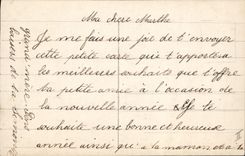 Ma chère Marthe
Je me fais une joie de t'envoyer
cette petite carte qui t'apportera
les meilleurs souhaits que t'offre
ta petite amie à l'occasion de
la nouvelle année Je te
souhaite une bonne et heureuse
année ainsi qu'a ta maman